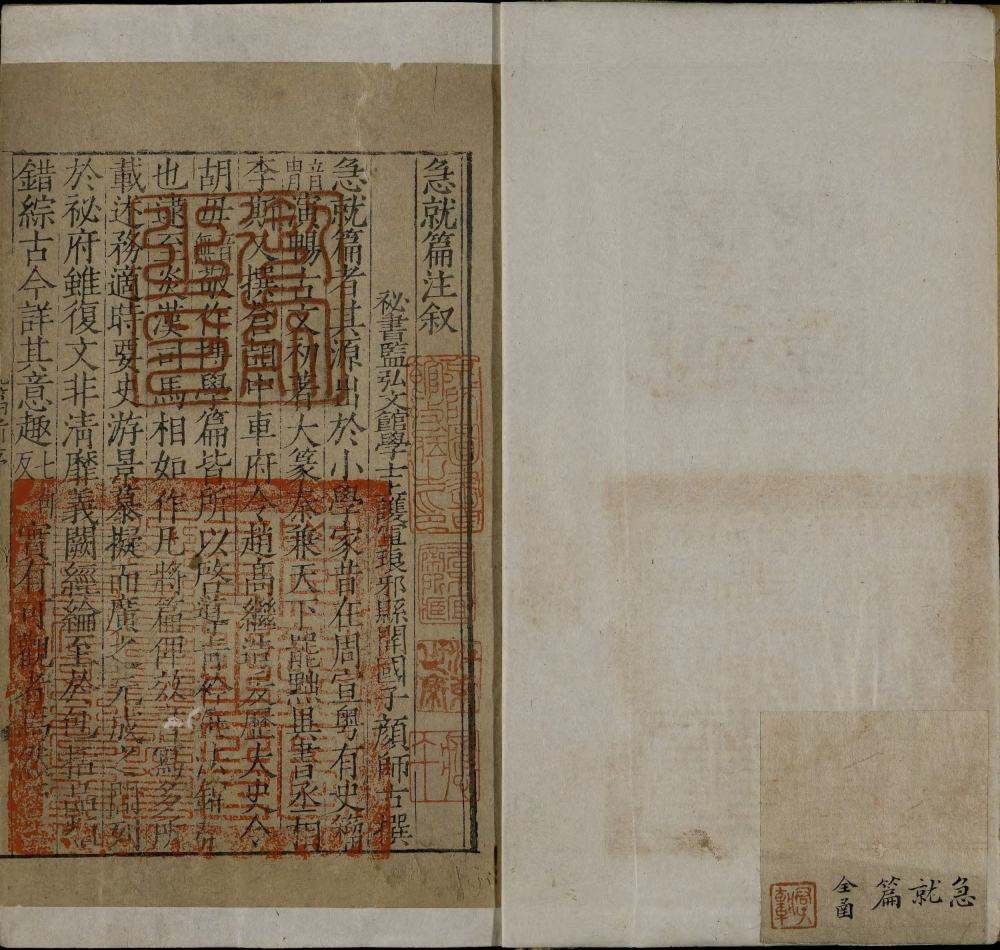 急就篇
全函
急就篇注叙
秘書監弘文館學士護軍琅邪縣開國子顏師古撰
急就篇者其源出於小學家昔在周宣粵有史籀
音胄演暢古文初著大篆秦兼天下罷黜異書丞相
李斯又撰蒼頡中車府令趙高繼造爰歷太史令
胡毋音無敬作博學篇皆所以啓導青衿
也逮至炎漢司馬相如作凡將篇俾效書寫多所
載述務適時要史游景慕擬而廣之元成之間列
於祕府雖復文非清靡義闕經綸至於包括品
錯綜古今詳其意趣實有可觀者焉